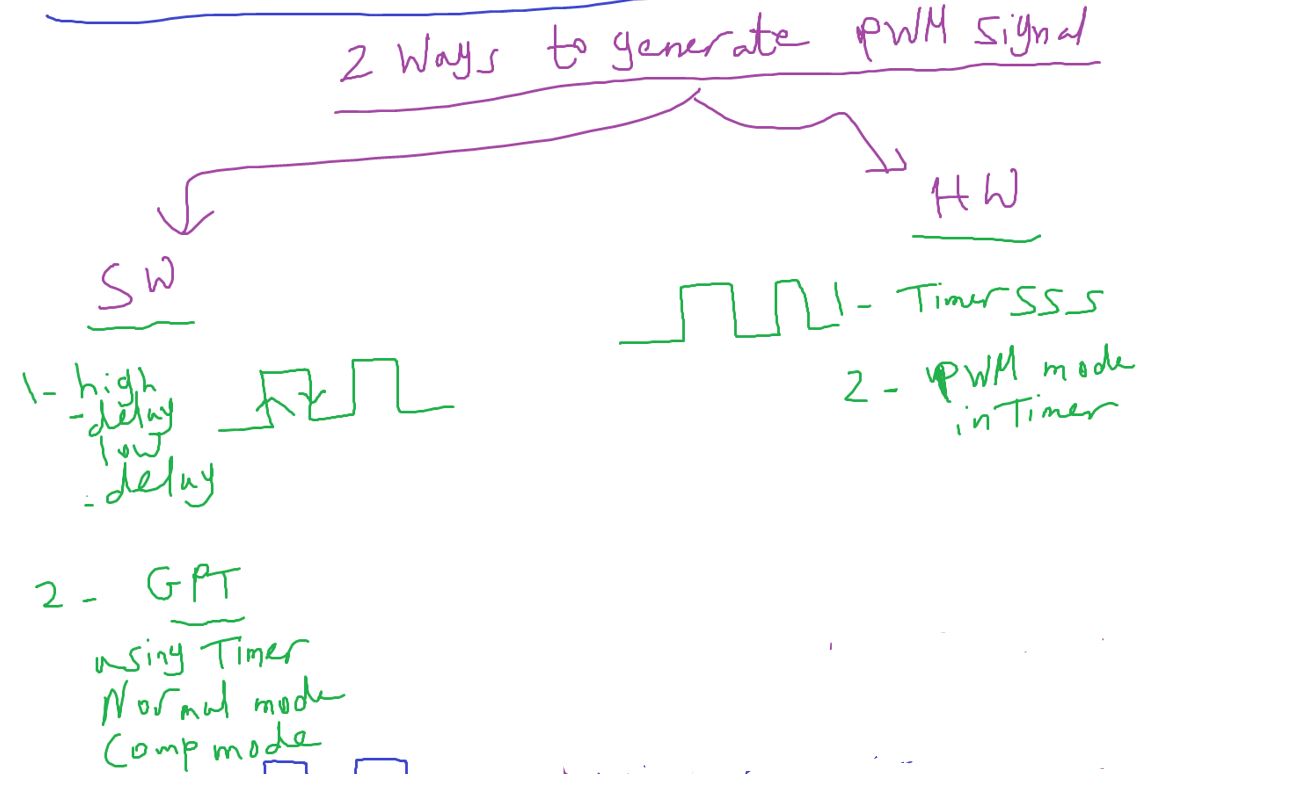 2 Ways to generate PWM signal
SW
1- high
- delay
low
- delay
2 - GPT
using Timer
Normal mode
Comp mode
HW
1- Timer 555
2 - PWM mode
in Timer